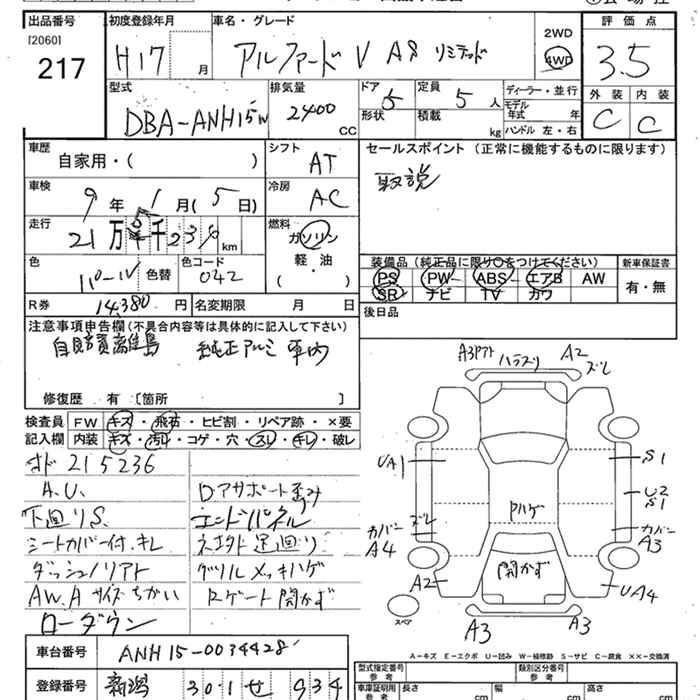 出品番号 初度登録年月 車名・グレード 評価点
[2060]
217
H17 月 アルファード V AS リミテッド 2WD 4WD 3.5
型式 排気量 ドア 5 定員 5 人 ディーラー・並行 外装 内装
DBA-ANH15W 2400 CC 形状 積載 kg モデル年式 年 C C
ハンドル 左・右
車歴 シフト セールスポイント (正常に機能するものに限ります)
自家用・( ) AT 取説
車検 冷房
9 年 1 月 ( 5 日) AC
走行 燃料
21 万 5 千 236 km ガソリン
軽・油
( )
装備品 (純正品に限り○をつけてください) 新車保証書
色 色替 色コード PS PW ABS エアB AW 有・無
パール 042 SR ナビ TV カワ
R券 14,380 円 名変期限 月 日 後日品
注意事項申告欄(不具合内容等は具体的に記入して下さい)
自賠責離島 純正アルミ車内
修復歴 有 [箇所 ]
検査員 FW キズ・飛石・ヒビ割・リペア跡・×要
記入欄 内装 キズ・汚れ・コゲ・穴・スレ・キレ・破レ
215236
A.U. Dアサポート歪み
下回りS. エンドパネル
シートカバー付.キレ
ダッシュノリアト グリルメッキハゲ
AW.A サイズちがい Rゲート開かず
ローダウン
A3 ハラズリ A2 ズレ
UA1 S1
U2
S1
ズレ
カバー A4 カバー A3
A2 UA4
開かず
スペア
A3 A3
A-キズ E-エクボ U-凹み W-補修跡 S-サビ C-腐食 XX-交換済
車台番号 ANH15-0034428
型式指定番号 参考 類別区分番号 参考
登録番号 新潟 301 せ 934
車庫証明用 参考 長さ cm 幅 cm 高さ cm